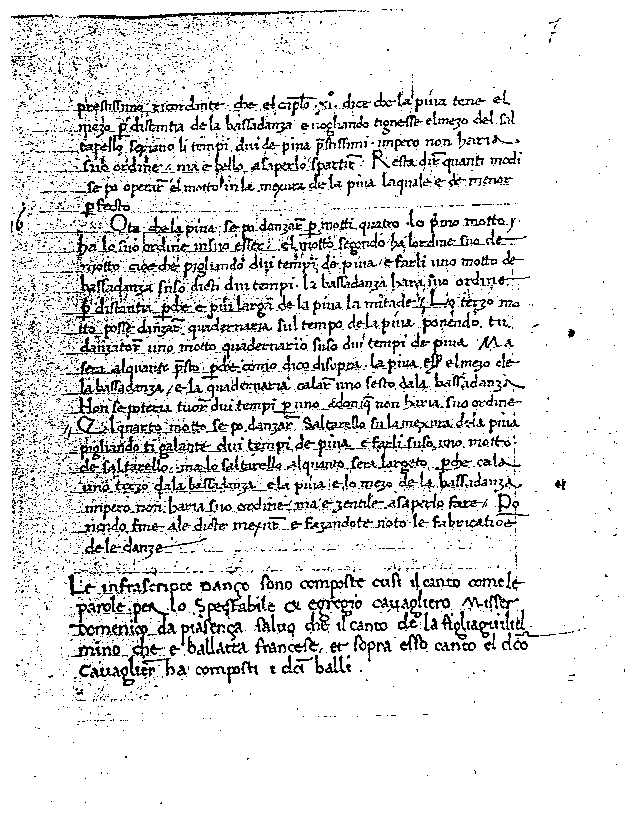 7
prestissimo ricordinte che el ciplo xiº dice che la piva tene el
mezo p distantia de la bassadanza e vogliando tignesse el mezo del sal
tarello seriano li tempi dui de piva pstissimi impero non haria
suo ordine ma e bello a saperlo spartir Resta dir quanti modi
se po operar el motto in la mexura de la piva laquale e de menor
pfecto
16 Ota che la piva se po danzar p motti quatro lo pmo motto
ha lo suo ordine in suo esser el motto segondo ha lordine suo de
motto cioe che pigliando dui tempi de piva e farli uno motto de
bassadanza suso diti dui tempi la bassadanza hara suo ordine
p distantia pche e piu larga de la piva la mitade Lo terzo mo
tto posse danzar quadernaria sul tempo de la piva ponendo tu
danzator uno motto quadernario suso dui tempi de piva Ma
sera alquante psto pche como dico disopra la piva ess el mezo de
la bassadanza e la quadernaria calar uno sesto dala bassadanza
Non se poteria tuor dui tempi p uno adonq non haria suo ordine
El quarto motto se po danzar Saltarello su la mexura de la piva
pigliando ti galante dui tempi de piva e farli suso uno motto
de saltarello ma lo saltarello alquanto sera largeto pche cala
uno terzo dala bassadanza e la piva e lo mezo de la bassadanza
impero non haria suo ordine ma e zentile a saperlo fare Po
nendo fine ale dicte mexure e fazandote noto le fabricatioe
de le danze
Le infrascripte Danço sono composte cusi il canto come le
parole per lo Spectabile & egregio cavagliero Misser
Domenico da piasença salvo che il canto de la figliaguiliel
mino che e ballatta francese, et sopra esso canto el dco
Cavaglier ha composti i dci balli .